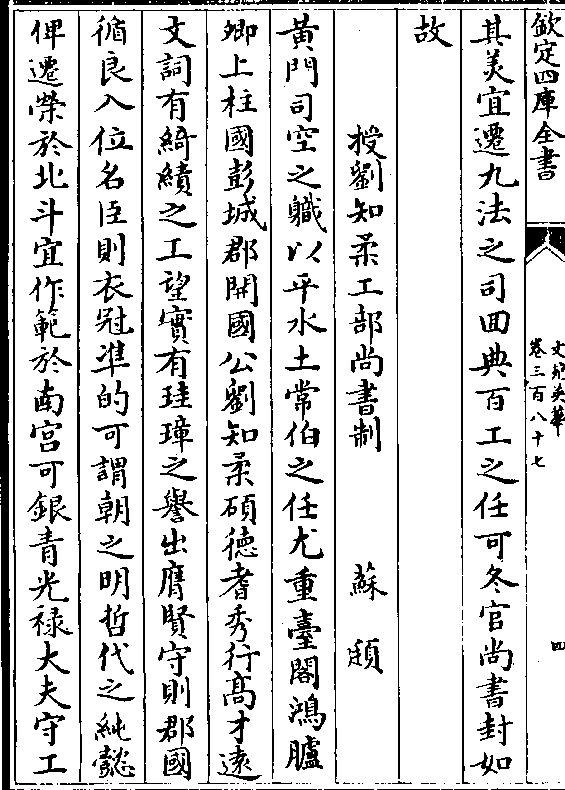 欽定四庫全書
文苑英華
卷三百八十七
四
其美宜遷九法之司囬典百工之任可冬官尚書封如
故
授劉知柔工部尚書制 蘇頲
黄門司空之職以平水土常伯之任尤重臺閣鴻臚
卿上柱國彭城郡開國公劉知柔碩徳耆秀行髙才逺
文詞有綺績之工望實有珪璋之譽出膺賢守則郡國
循良入位名臣則衣冠凖的可謂朝之明哲代之純懿
俾遷榮於北斗宜作範於南宫可銀青光禄大夫守工